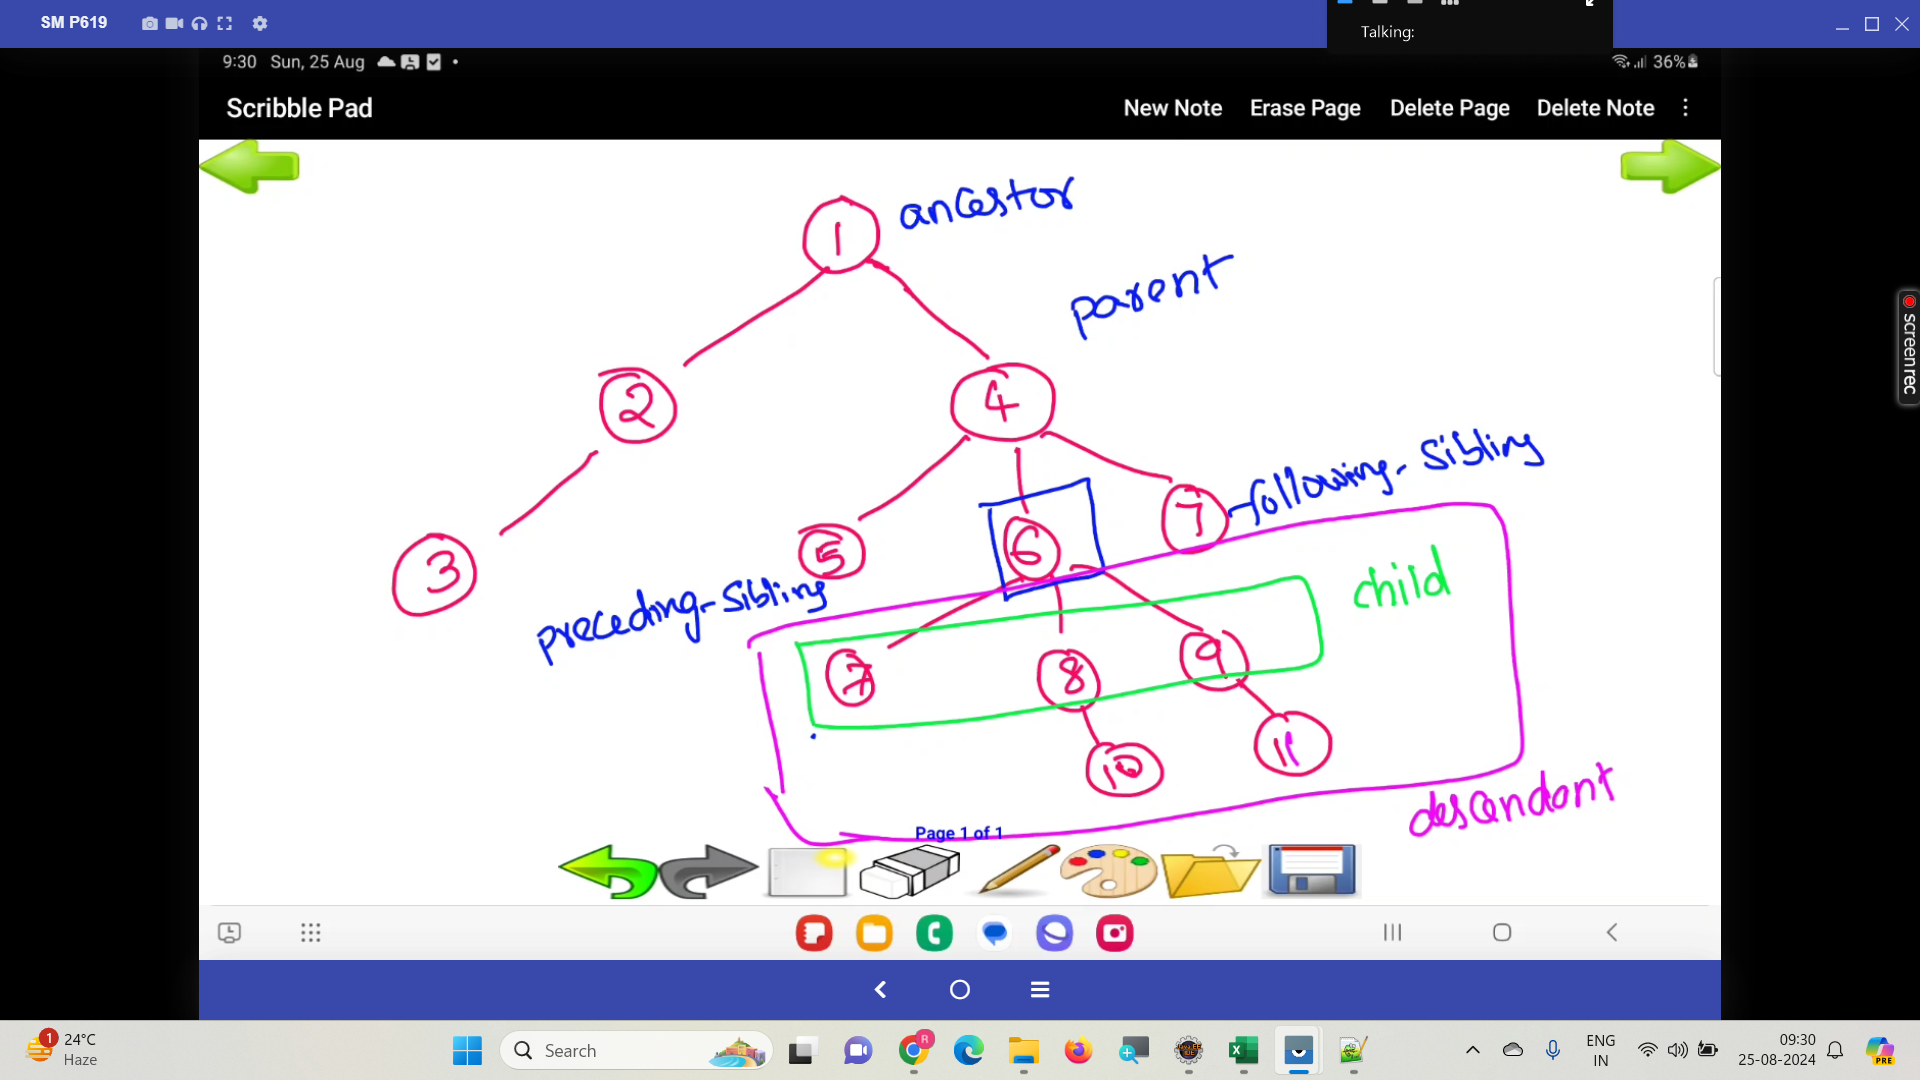 SM P619
Talking:
9:30 Sun, 25 Aug
36%
Scribble Pad
New Note Erase Page Delete Page Delete Note
1
ancestor
parent
2
4
following-sibling
3
5
6
7
preceding-sibling
child
7
8
9
10
11
descendant
Page 1 of 1
screenrec
1
24°C
Haze
Search
R
ENG
IN
09:30
25-08-2024
PRE